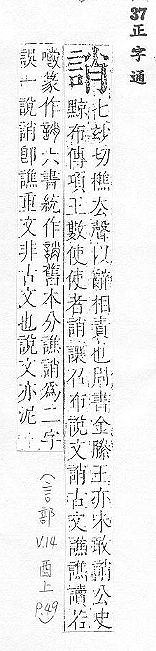 37 正字通
誚
七妙切樵去聲以辭相責也周書金縢王亦未敢誚公史
黥布傳項王數使使者誚讓召布說文誚古文譙譙讀若
嚼篆作 六書統作 舊本分譙誚爲二字
誤一說誚即譙重文非古文也說文亦泥
(言部 V.14 酉上 P.49)